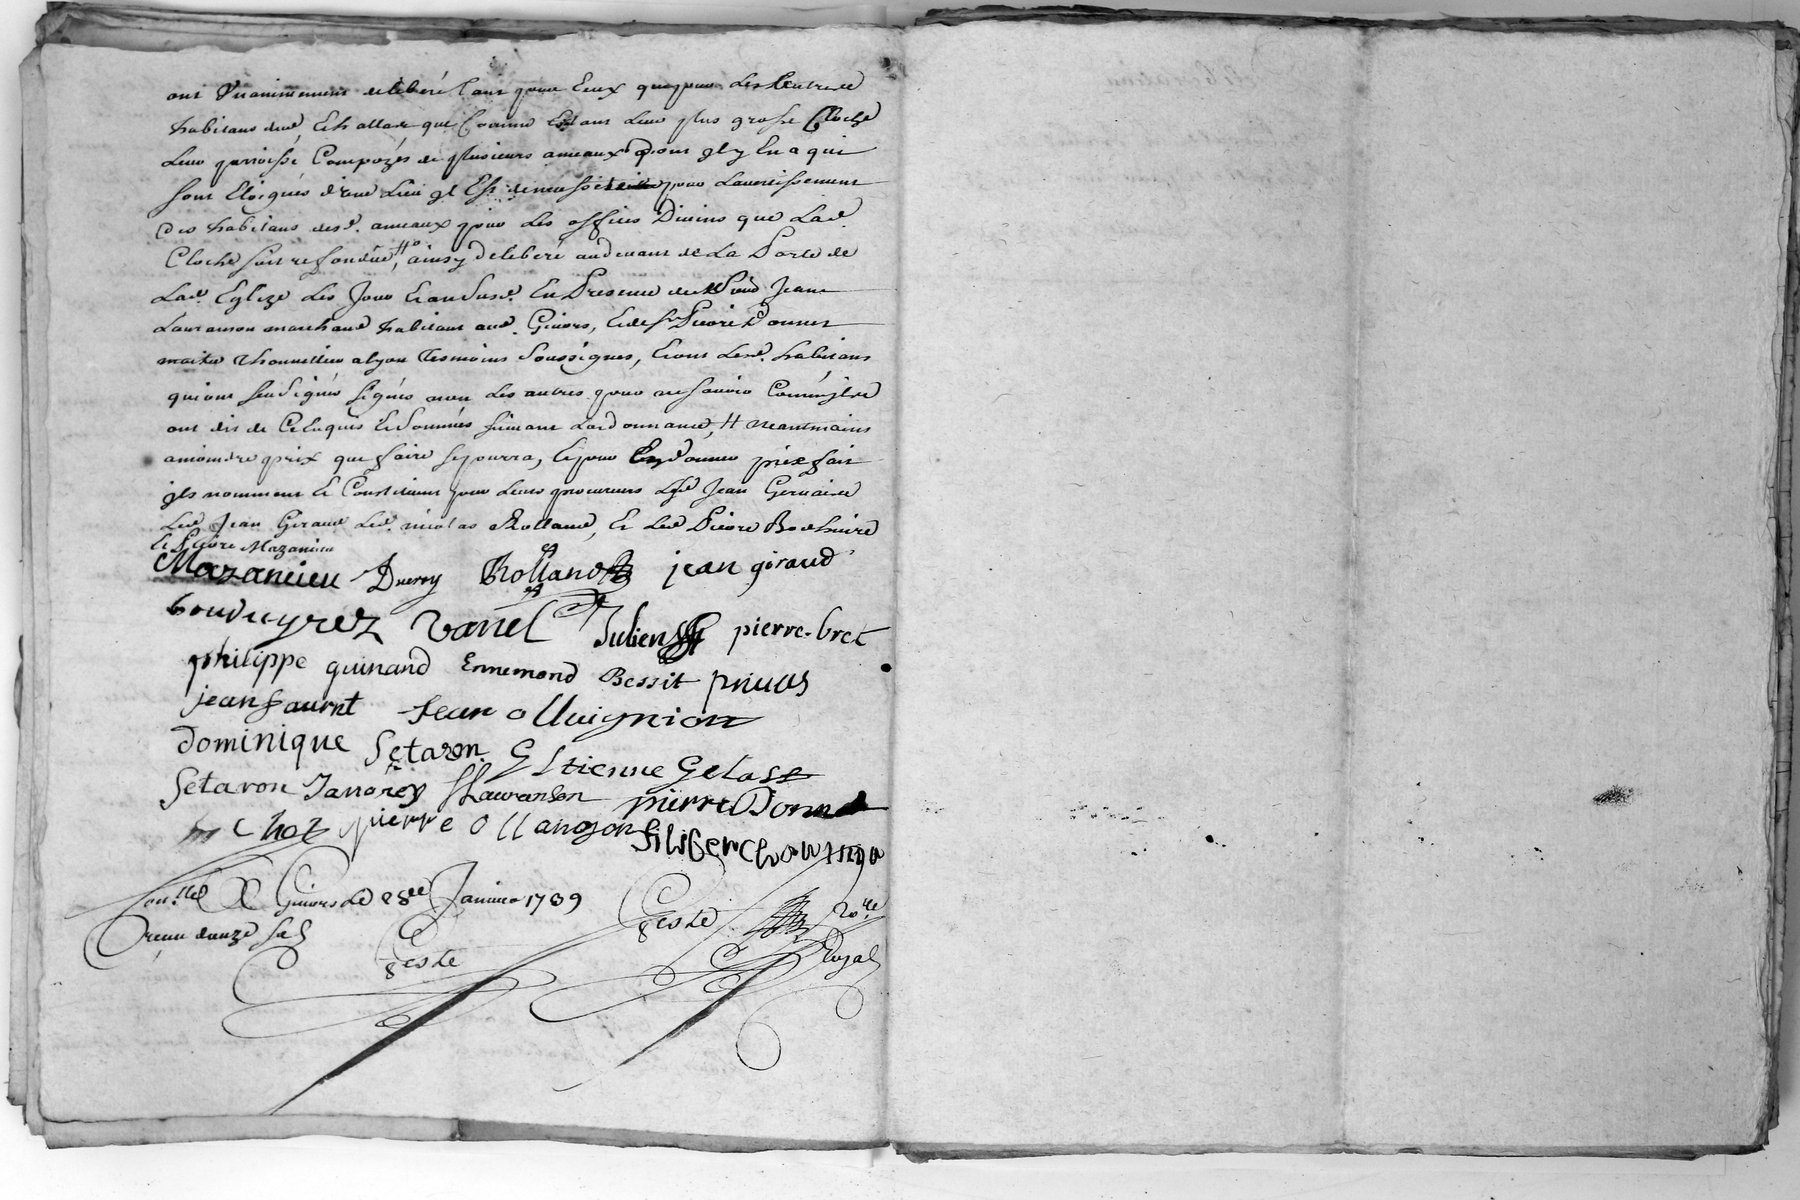 ont unanimement deliberé tant pour Eux que pour Les autres
habitans dud. Echallas que Comme Estant Leur plus grosse Cloche
Leur parroisse Composéz de plusieurs ameaux dont yl y En a qui
sont Eloignés d'une Lieu yl Est pour Lavertissement
Des habitans desd. ameaux pour Les offices Divins que Lad.
Cloche soit refondüe, # ainsy Deliberé audevant de La Porte de
Lad. Eglize Les Jour Et an Susd. En Presence de Jean
Lauranson marchand habitant aud. Givors, Et de sr. Pierre Donnet
maitre a lyon Tesmoins Soussignés, Et ont Lesd. habitans
qui ont sceu Signer signés non Les autres pour ne sçavoir Comme yls
ont dit de Ce Enquis Et Sommés suivant Lordonnance, # neantmoins
amoindre prix que faire se pourra, Et pour En donner prix fait
yls nomment Et Constituent pour Leurs procureurs Led. Jean Gervaise
Led. Jean Giraud Led. nicolas Rolland, Et Led. Pierre
Et Pierre Mazancieu
Mazancieu Ducroy Rolland jean giraud
bouveyrez vanel Julien pierre bret
philippe guinand Ennemond Bessit privas
jean faurat Jean ollagnion
Dominique Setaron Estienne Gelas
Setaron Lauranson pierre Donnet
Chol pierre ollangon
Con.lle A Givors Le 28e Janvier 1739
receu douze sols
Geste
Geste No.re
Royal